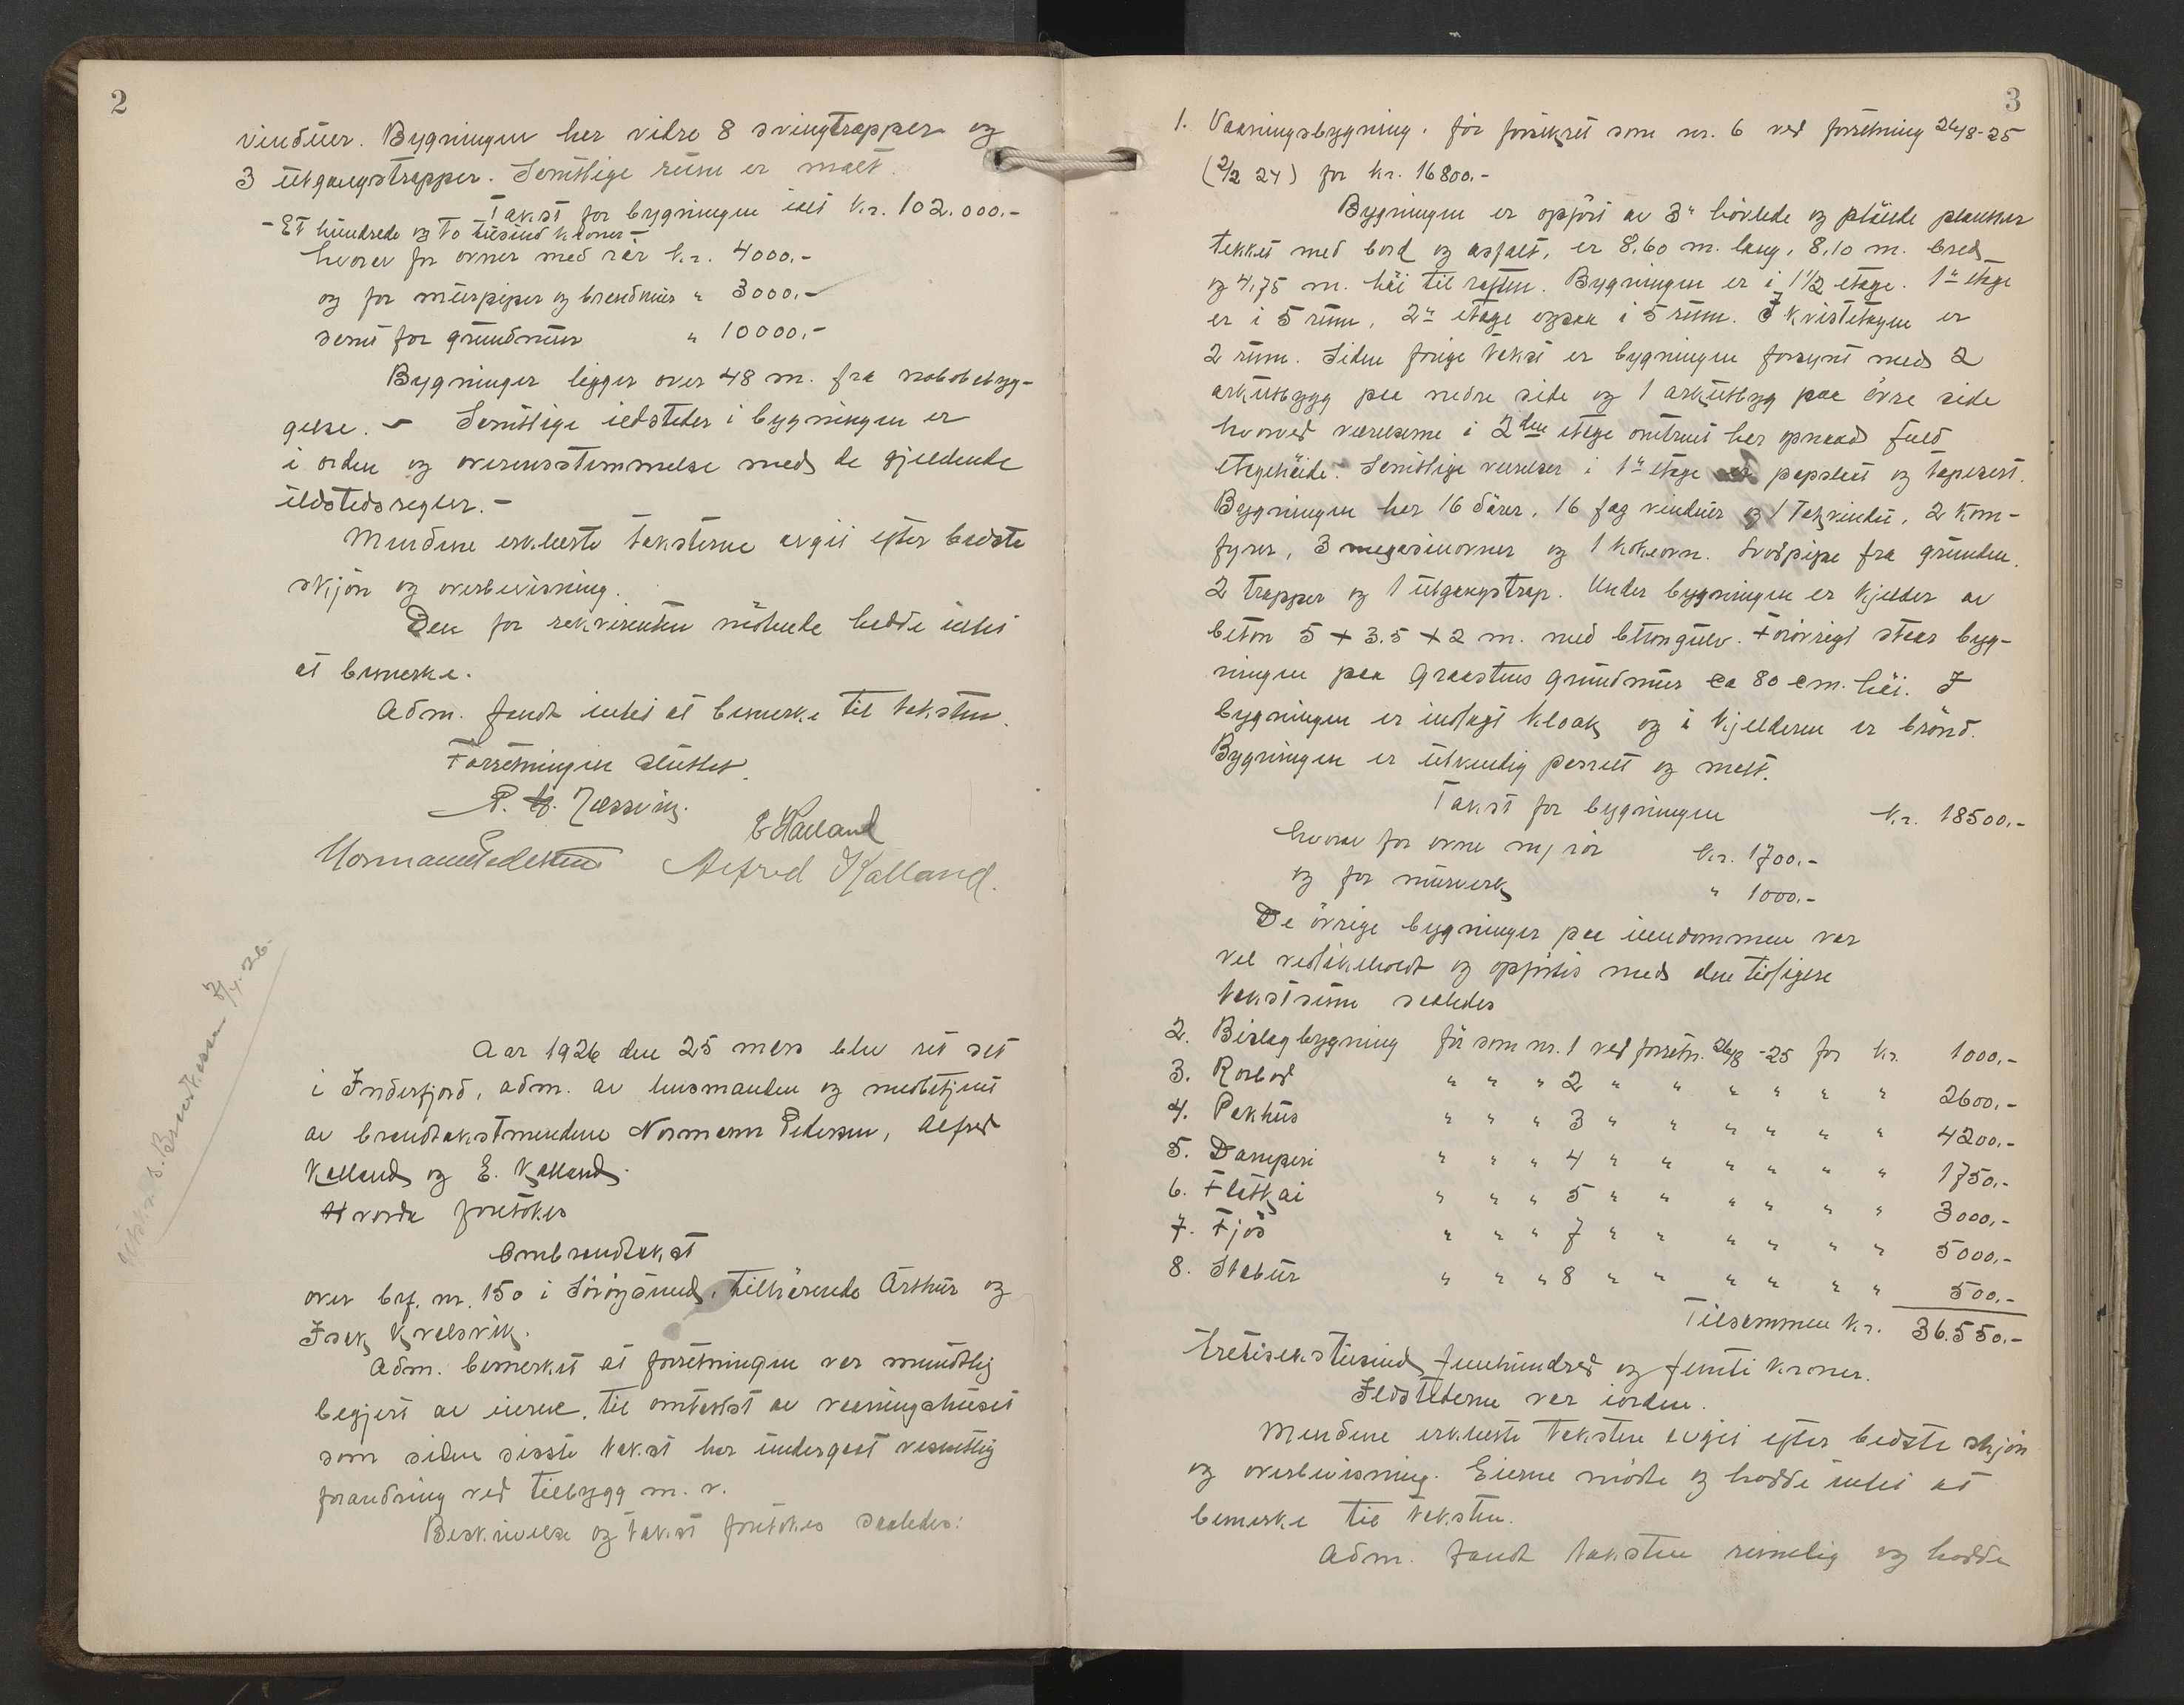 2
vinduer. Bygningen har videre 8 svingtrapper og
3 utgangstrapper. Samtlige rum er malt.
Takst for bygningen ialt kr. 102.000.-
- Et hundrede og to tusind kroner -
hvorav for ovner med rør kr. 4000.-
og for murpiper og brandmur " 3000.-
samt for grundmur " 10000.-
Bygninger ligger over 48 m. fra nabobebyg-
gelse. - Samtlige ildsteder i bygningen er
i orden og overensstemmelse med de gjeldende
ildstedsregler. -
Mændene erklærte taksterne avgit efter bedste
skjøn og overbevisning.
Den for rekvirenten møtende hadde intet
at bemerke.
Adm. fandt intet at bemerke til taksten.
Forretningen sluttet.
P. Jessving.
E Kalland
Normann Pedersen Alfred Kalland.
Utskr. s. Brandkassen 7/4-26-
Aar 1926 den 25 mars blev ret sat
i Inderfjord, adm. av lensmanden og medbetjent
av brandtakstmændene Normann Pedersen, Alfred
Kalland og E. Kalland.
Hvorda foretokes
Ombrandtakst
over brf. nr. 150 i Söröysund, tilhørende Arthur og
Isak Kvalsvik.
Adm. bemerket at forretningen var mundtlig
begjært av eierne, til omtakst av vaaningshuset
som siden sisste takst har undergaat væsentlig
forandring ved tilbygg m. v.
Beskrivelse og takst foretokes saaledes:
3
1. Vaaningsbygning. før forsikret som nr. 6 ved forretning 26/8-25
(2/2 24) for kr. 16800.-
Bygningen er opført av 3" høvlede og pløiede planker
tekket med bord og asfalt, er 8,60 m. lang, 8,10 m. bred
og 4,75 m. høi til raften. Bygningen er i 1 1/2 etage. 1ste etage
er i 5 rum, 2" etage ogsaa i 5 rum. I kvistetagen er
2 rum. Siden forige takst er bygningen forsynt med 2
arkutbygg paa nedre side og 1 arkutbyg paa övre side
hvorved værelserne i 2den etage omtrent har opnaad fuld
etagehøide. Samtlige værelser i 1ste etage er papslaat og tapesert.
Bygningen har 16 dører, 16 fag vinduer og 1 takvindu, 2 kom-
fyrer, 3 magasinovner og 1 kokeovn. Svodpipe fra grunden.
2 trapper og 1 utgangstrap. Under bygningen er kjelder av
beton 5 + 3.5 + 2 m. med betongulv. Forøvrigt staar byg-
ningen paa graastens grundmur ca 80 cm. høi. I
bygningen er indlagt kloak og i kjelderen er brønd.
Bygningen er utvendig panelt og malt.
Takst for bygningen kr. 18500.-
hvorav for ovne m/ rør kr. 1700.-
og for murverk " 1000.-
De øvrige bygninger paa eiendommen var
vel vedlikeholdt og opførtes med den tidligere
takstsum saaledes
2. Beslagbygning før som nr. 1 ved forretn. 26/8 -25 for kr. 1000.-
3. Rorbod " " " 2 " " " " " 2600.-
4. Pakhus " " " 3 " " " " " 4200.-
5. Damperi " " " 4 " " " " " 1750.-
6. Flatkai " " " 5 " " " " " 3000.-
7. Fjøs " " " 7 " " " " " 5000.-
8. Stabur " " " 8 " " " " " 500.-
Tilsammen kr. 36.550.-
tretisekstusind femhundred og femti kroner.
Ildstederne var iorden.
Mændene erklærte taksten avgit efter bedste skjøn
og overbevisning. Eierne møtte og hadde intet at
bemerke til taksten.
Adm. fandt taksten rimelig og hadde